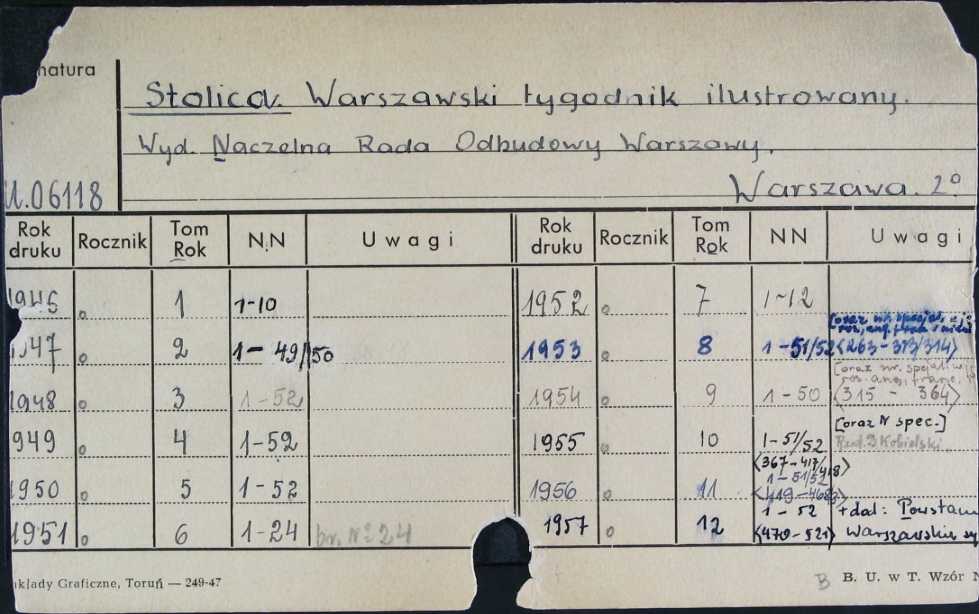 natura
Stolica. Warszawski tygodnik ilustrowany.
Wyd. Naczelna Rada Odbudowy Warszawy.
U.06118 Warszawa. 2°
Rok druku Rocznik Tom Rok N.N Uwagi Rok druku Rocznik Tom Rok NN Uwagi
1946 o 1 1-10 1952 o 7 1-12
1947 o 2 1-49/50 1953 o 8 1-51/52 [oraz nr. <263-313/314>
1948 o 3 1-52 1954 o 9 1-50 [oraz nr. <315 - 364>
949 o 4 1-52 1955 o 10 1-51/52 [oraz N spec.] Red. D Kobielski
<367-417/418>
1950 o 5 1-52 1956 o 11 1-51/52
1951 o 6 1-24 br. Nº 24 1957 o 12 1-52 +dod: Powstan
<470-521> Warszawskie
akłady Graficzne, Toruń — 249-47 B B. U. w T. Wzór N